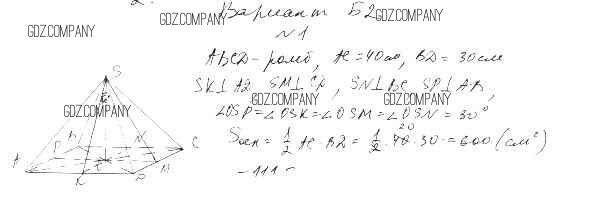 Вариант Б2
GDZ.COMPANY GDZ.COMPANY GDZ.COMPANY
N1
ABCD - ромб, AC = 40 см, BD = 30 см
SK⊥AD SM⊥CD, SN⊥BC SP⊥AB,
GDZ.COMPANY GDZ.COMPANY GDZ.COMPANY
∠OSP = ∠OSK = ∠OSM = ∠OSN = 30°
Sосн = 1/2 AC · BD = 1/2 · 40 · 30 = 600 (см²)
20
- 111 -
S
A
P
B
N
C
K
D
M